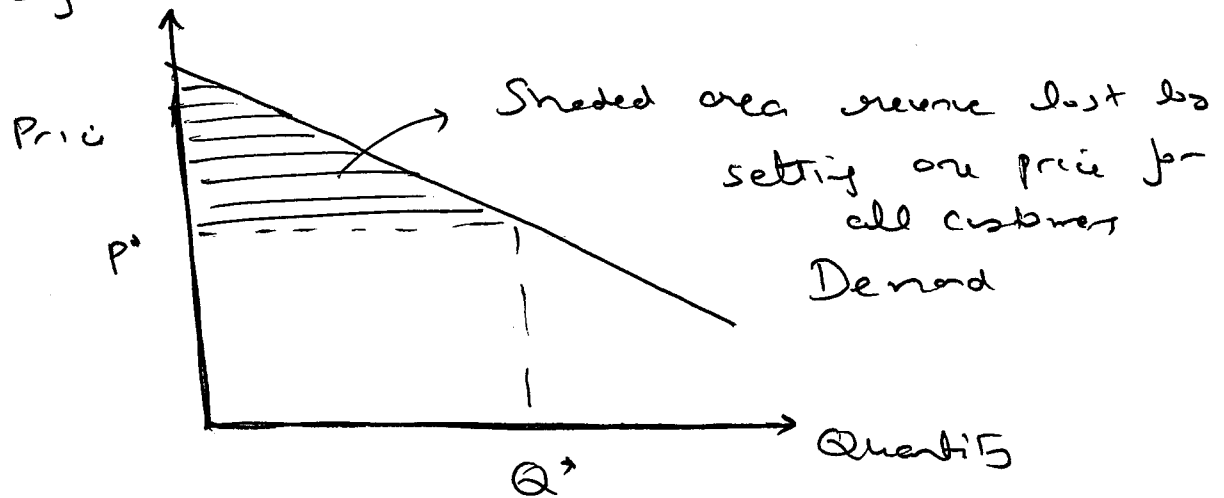 Price
Shaded area revenue lost by
setting one price for
all customers
P*
Demand
Quantity
Q*